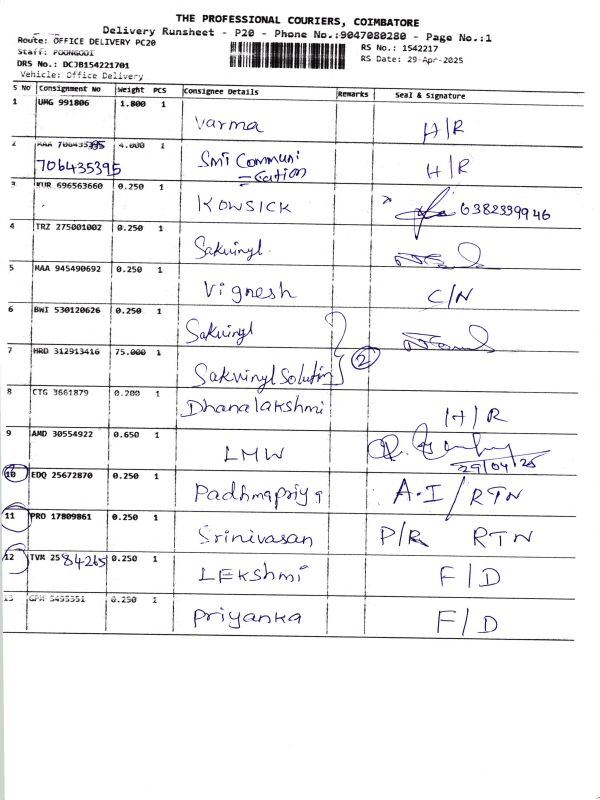 THE PROFESSIONAL COURIERS, COIMBATORE
Delivery Runsheet - P20 - Phone No.:9047080280 - Page No.:1
Route: OFFICE DELIVERY PC20
RS No.: 1542217
Staff: POONGODI
RS Date: 29-Apr-2025
DRS No.: DCJB154221701
Vehicle: Office Delivery
S No Consignment No Weight PCS Consignee Details Remarks Seal & Signature
1 UMG 991806 1.800 1 Varma H/R
2 MAA 706435395 4.000 1 Smi Communi
706435395 -cation H/R
3 KUR 696563660 0.250 1 KOWSICK 6382339946
4 TRZ 275001002 0.250 1 Sakvinyl
5 MAA 945490692 0.250 1 Vignesh C/N
6 BWI 530120626 0.250 1 Sakvinyl
7 HRD 312913416 75.000 1 Sakvinyl Solution 2
8 CTG 3661879 0.200 1 Dhanalakshmi H/R
9 AMD 30554922 0.650 1 LMW
29/04/25
10 EDQ 25672870 0.250 1 Padhmapriya A.I/RTN
11 PRO 17809861 0.250 1 Srinivasan P/R RTN
12 TVM 2584265 0.250 1 LEKshmi F/D
13 5495551 0.250 1 Priyanka F/D